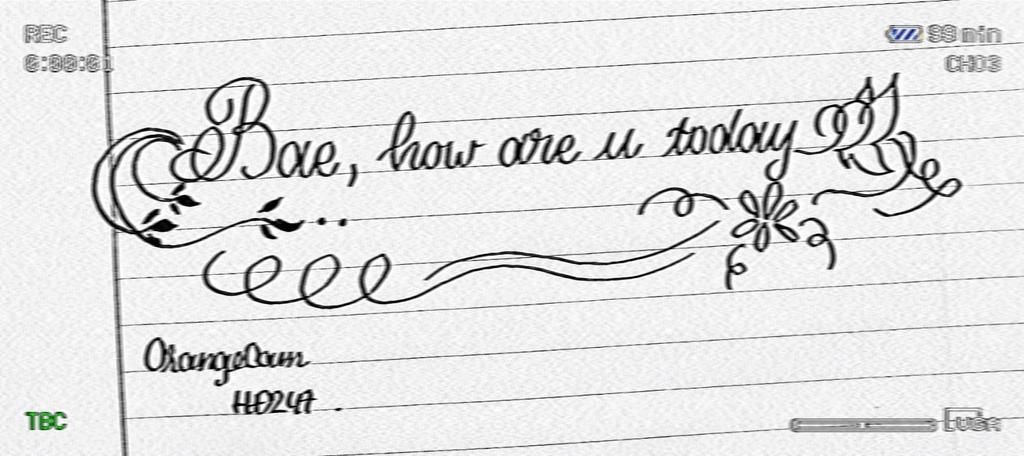 REC
99 min
0:00:01
CH03
Bae, how are u today
OrangeCam
HD247.
TBC